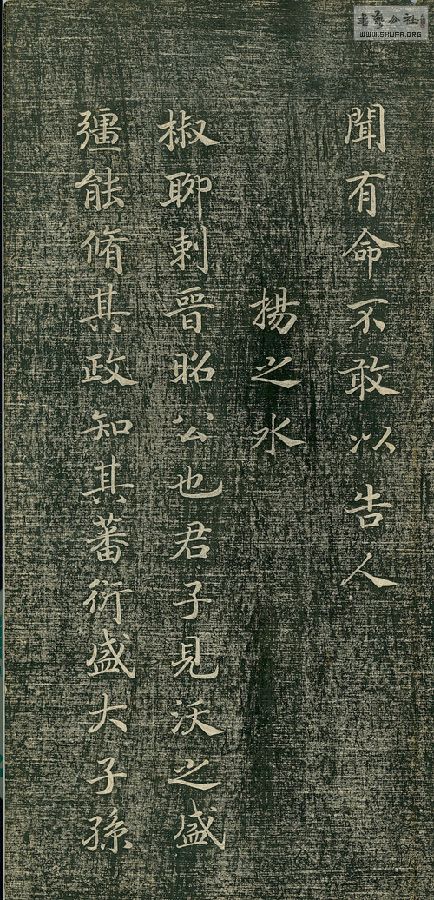 聞有命不敢以告人
揚之水
椒聊刺晉昭公也君子見沃之盛
彊能脩其政知其蕃衍盛大子孫
書艺公社
WWW.SHUFA.ORG